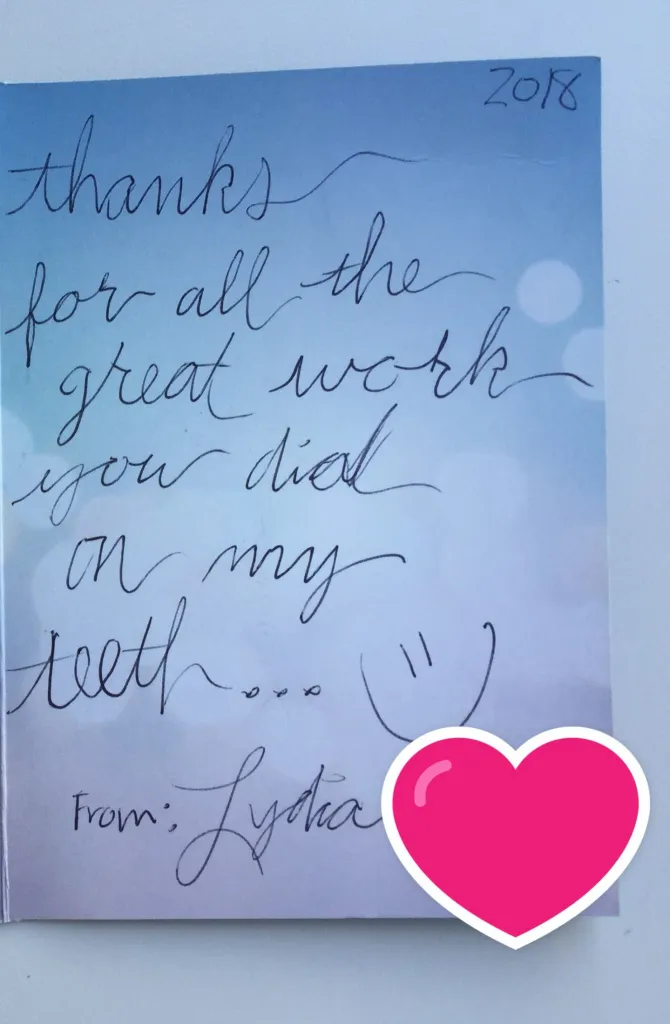 2018
thanks
for all the
great work
you did
on my
teeth...
From: Lydia